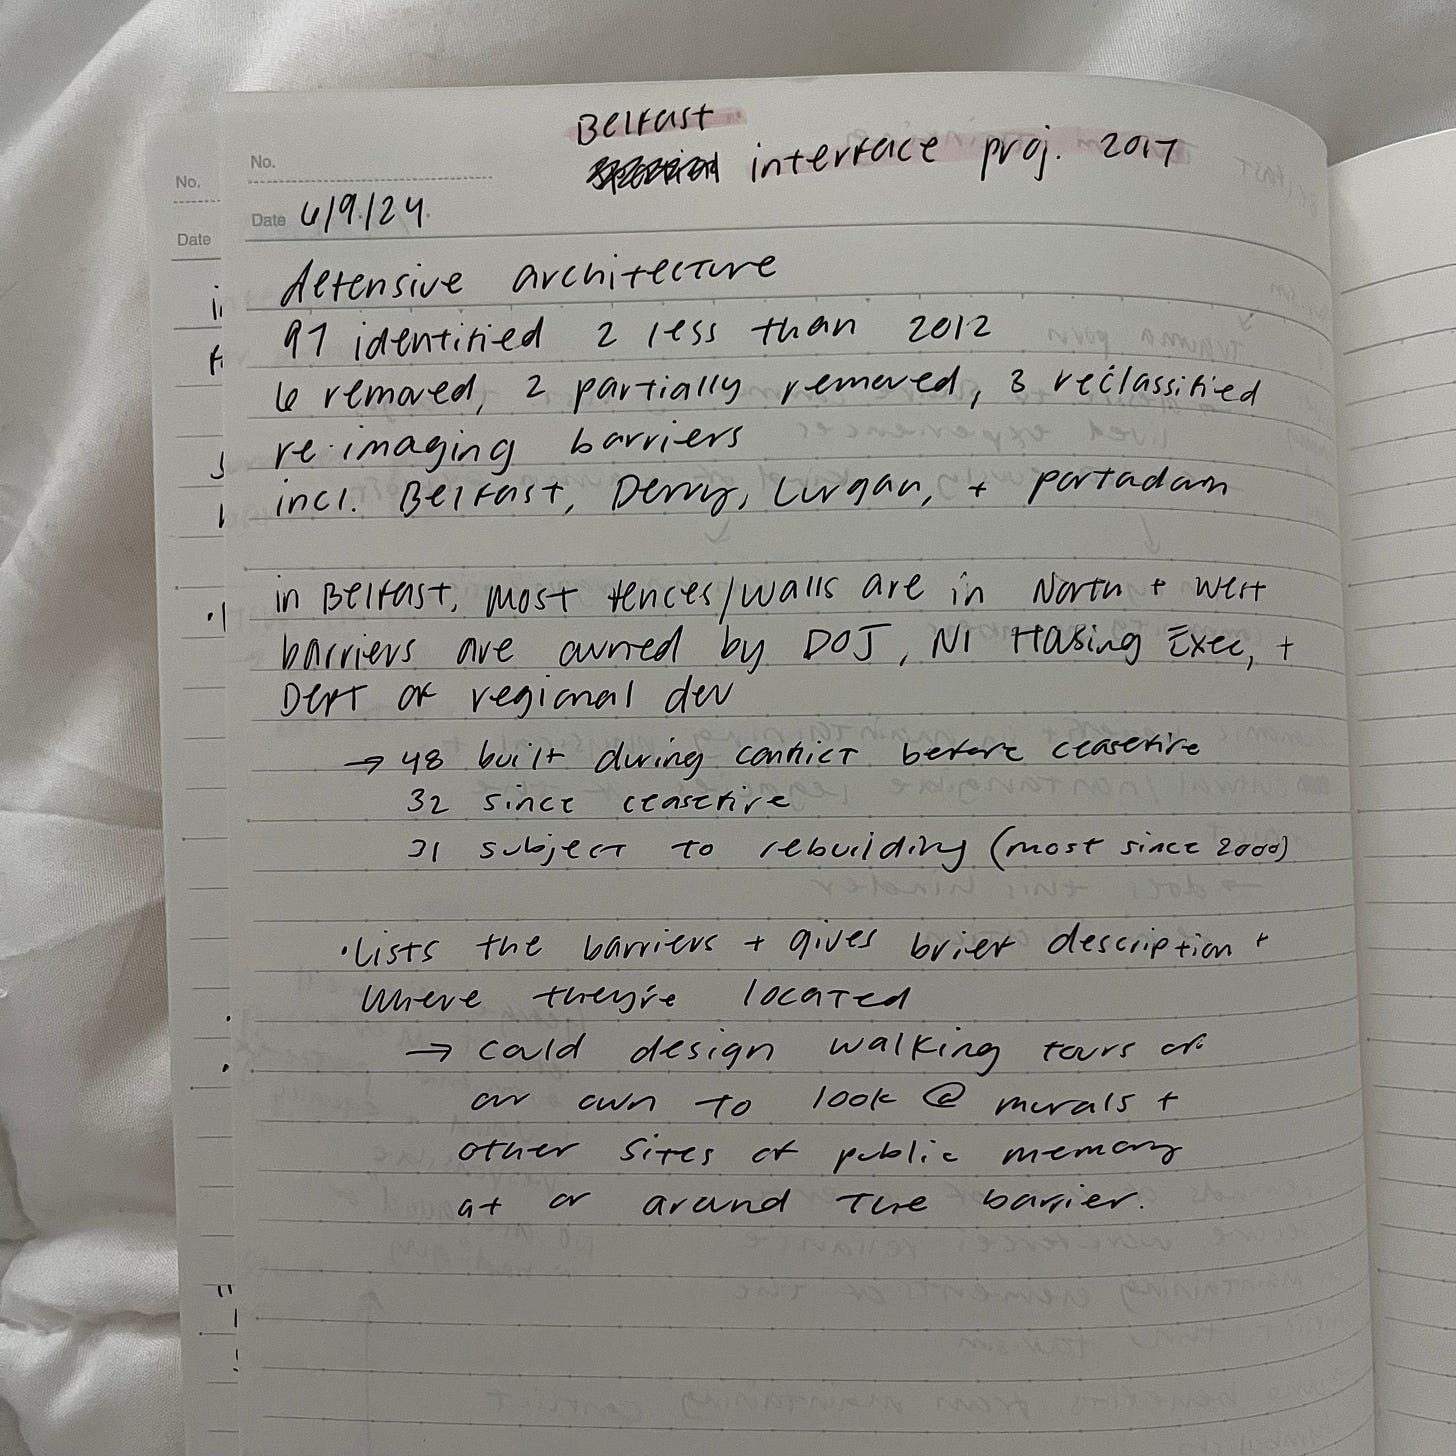 Belfast
interface proj. 2017
No.
Date 6/9/24
No.
Date
defensive architecture
97 identified 2 less than 2012
6 removed, 2 partially removed, 3 reclassified
re-imaging barriers
incl. Belfast, Derry, Lurgan, + portadam
in Belfast, most fences/walls are in North + West
barriers are owned by DOJ, NI Housing Exec, +
Dept of regional dev
→ 48 built during conflict before ceasefire
32 since ceasefire
31 subject to rebuilding (most since 2000)
·lists the barriers + gives brief description +
where they're located
→ could design walking tours of
our own to look @ murals +
other sites of public memory
at or around the barrier.